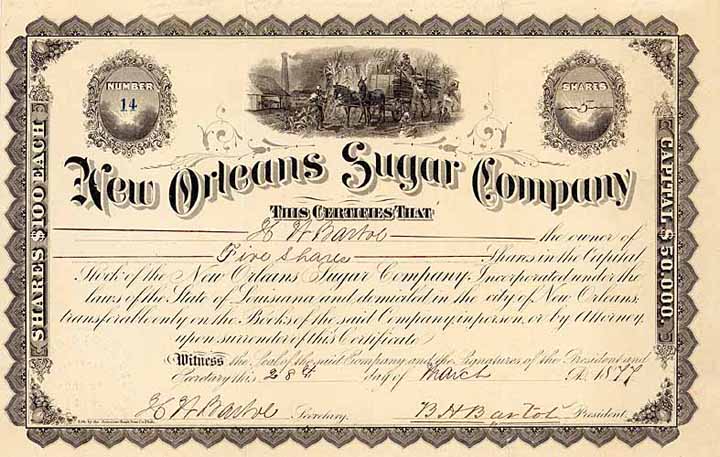 NUMBER
14
SHARES
5
SHARES $100 EACH
CAPITAL $50,000.
New Orleans Sugar Company
THIS CERTIFIES THAT
H W Bartol the owner of
Five Shares Shares in the Capital
Stock of the New Orleans Sugar Company, Incorporated under the
laws of the State of Louisiana and domiciled in the city of New Orleans,
transferable only on the Books of the said Company in person or by Attorney
upon surrender of this Certificate
Witness the Seal of the said Company and the Signatures of the President and
Secretary this 28th day of March A.D. 1877
H W Bartol Secretary. B H Bartol President.
Lith. by the American Bank Note Co. Phila.